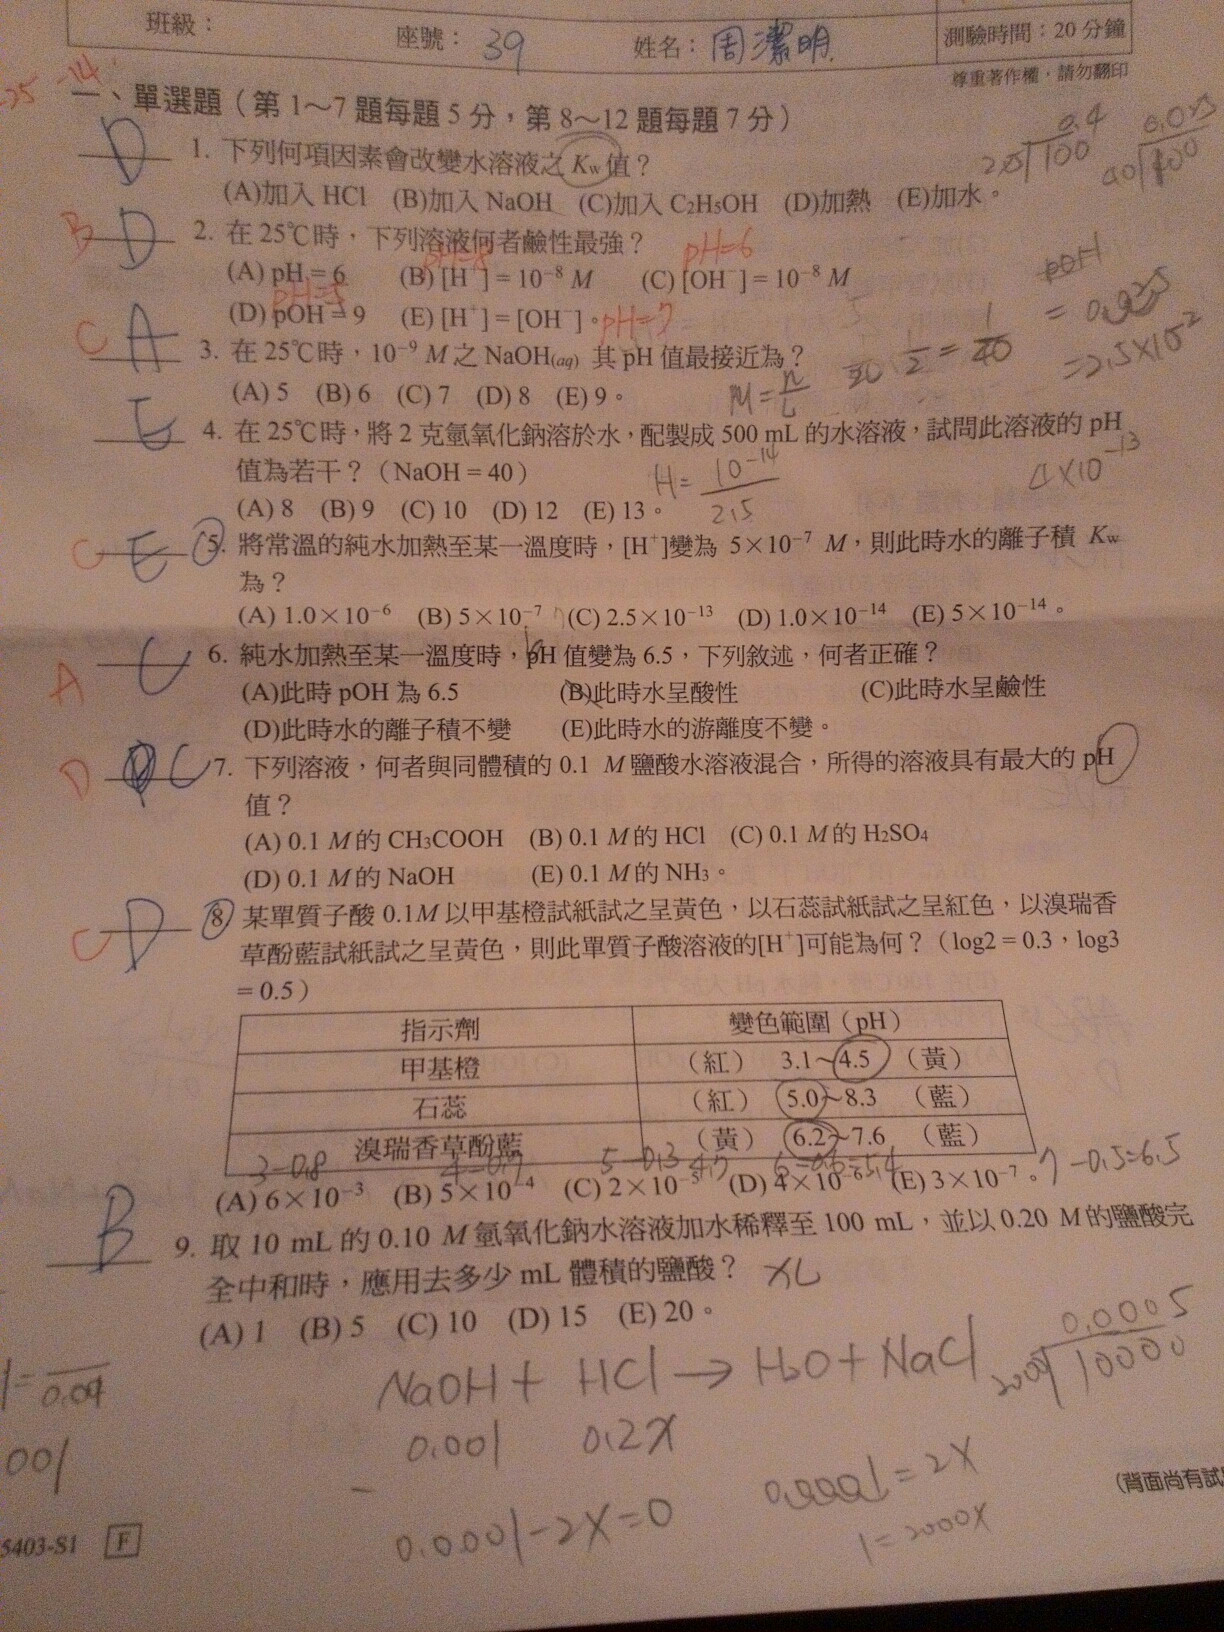 班級：
座號：39
姓名：周潔明
測驗時間：20 分鐘
尊重著作權，請勿翻印
-25 -14
一、單選題（第 1～7 題每題 5 分，第 8～12 題每題 7 分）
D 1. 下列何項因素會改變水溶液之 Kw 值？
(A)加入 HCl (B)加入 NaOH (C)加入 C2H5OH (D)加熱 (E)加水。
B D 2. 在 25℃時，下列溶液何者鹼性最強？
pH=8 pH=6
(A) pH = 6 (B) [H⁺] = 10⁻⁸ M (C) [OH⁻] = 10⁻⁸ M
pH=5
(D) pOH = 9 (E) [H⁺] = [OH⁻]。 pH=7
C A 3. 在 25℃時，10⁻⁹ M 之 NaOH(aq) 其 pH 值最接近為？
(A) 5 (B) 6 (C) 7 (D) 8 (E) 9。
M = n/L
E 4. 在 25℃時，將 2 克氫氧化鈉溶於水，配製成 500 mL 的水溶液，試問此溶液的 pH
值為若干？（NaOH = 40）
H = 10⁻¹⁴/2.5
4×10⁻¹³
(A) 8 (B) 9 (C) 10 (D) 12 (E) 13。
C E 5. 將常溫的純水加熱至某一溫度時，[H⁺]變為 5×10⁻⁷ M，則此時水的離子積 Kw
為？
(A) 1.0×10⁻⁶ (B) 5×10⁻⁷ (C) 2.5×10⁻¹³ (D) 1.0×10⁻¹⁴ (E) 5×10⁻¹⁴。
A C 6. 純水加熱至某一溫度時，pH 值變為 6.5，下列敘述，何者正確？
(A)此時 pOH 為 6.5 (B)此時水呈酸性 (C)此時水呈鹼性
(D)此時水的離子積不變 (E)此時水的游離度不變。
D C 7. 下列溶液，何者與同體積的 0.1 M 鹽酸水溶液混合，所得的溶液具有最大的 pH
值？
(A) 0.1 M 的 CH3COOH (B) 0.1 M 的 HCl (C) 0.1 M 的 H2SO4
(D) 0.1 M 的 NaOH (E) 0.1 M 的 NH3。
C D 8. 某單質子酸 0.1M 以甲基橙試紙試之呈黃色，以石蕊試紙試之呈紅色，以溴瑞香
草酚藍試紙試之呈黃色，則此單質子酸溶液的[H⁺]可能為何？（log2 = 0.3，log3
= 0.5）
指示劑 變色範圍（pH）
甲基橙 （紅） 3.1～4.5 （黃）
石蕊 （紅） 5.0～8.3 （藍）
溴瑞香草酚藍 （黃） 6.2～7.6 （藍）
3-0.8 4-0.7 5-0.3 4.7 6-0.6=5.4 7-0.5=6.5
(A) 6×10⁻³ (B) 5×10⁻⁴ (C) 2×10⁻⁵ (D) 4×10⁻⁶ (E) 3×10⁻⁷。
B 9. 取 10 mL 的 0.10 M 氫氧化鈉水溶液加水稀釋至 100 mL，並以 0.20 M 的鹽酸完
全中和時，應用去多少 mL 體積的鹽酸？ XL
(A) 1 (B) 5 (C) 10 (D) 15 (E) 20。
NaOH + HCl → H2O + NaCl
0.001 0.2X
0.0001-2X=0
1=2000X
0.0005
（背面尚有試
5403-S1 F